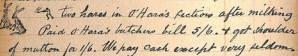 two hares in O'Hara's sections after milking
Paid O'Hara's butchers bill 5/6. & got shoulder
of mutton for 1/6. We pay cash except very seldom